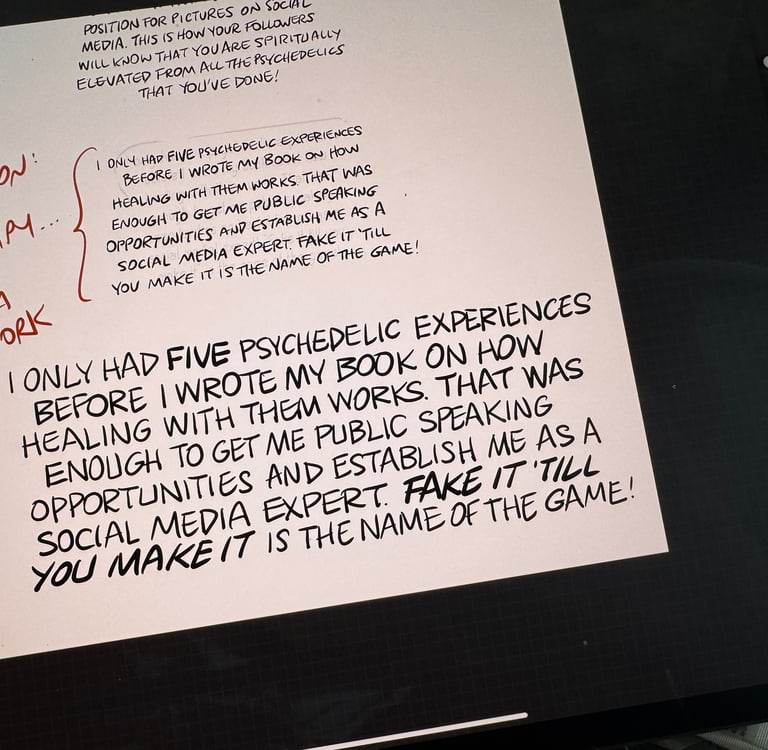 POSITION FOR PICTURES ON SOCIAL
MEDIA. THIS IS HOW YOUR FOLLOWERS
WILL KNOW THAT YOU ARE SPIRITUALLY
ELEVATED FROM ALL THE PSYCHEDELICS
THAT YOU'VE DONE!
ON:
I ONLY HAD FIVE PSYCHEDELIC EXPERIENCES
BEFORE I WROTE MY BOOK ON HOW
HEALING WITH THEM WORKS. THAT WAS
ENOUGH TO GET ME PUBLIC SPEAKING
OPPORTUNITIES AND ESTABLISH ME AS A
SOCIAL MEDIA EXPERT. FAKE IT 'TILL
YOU MAKE IT IS THE NAME OF THE GAME!
PY...
A
ORK
I ONLY HAD FIVE PSYCHEDELIC EXPERIENCES
BEFORE I WROTE MY BOOK ON HOW
HEALING WITH THEM WORKS. THAT WAS
ENOUGH TO GET ME PUBLIC SPEAKING
OPPORTUNITIES AND ESTABLISH ME AS A
SOCIAL MEDIA EXPERT. FAKE IT 'TILL
YOU MAKE IT IS THE NAME OF THE GAME!